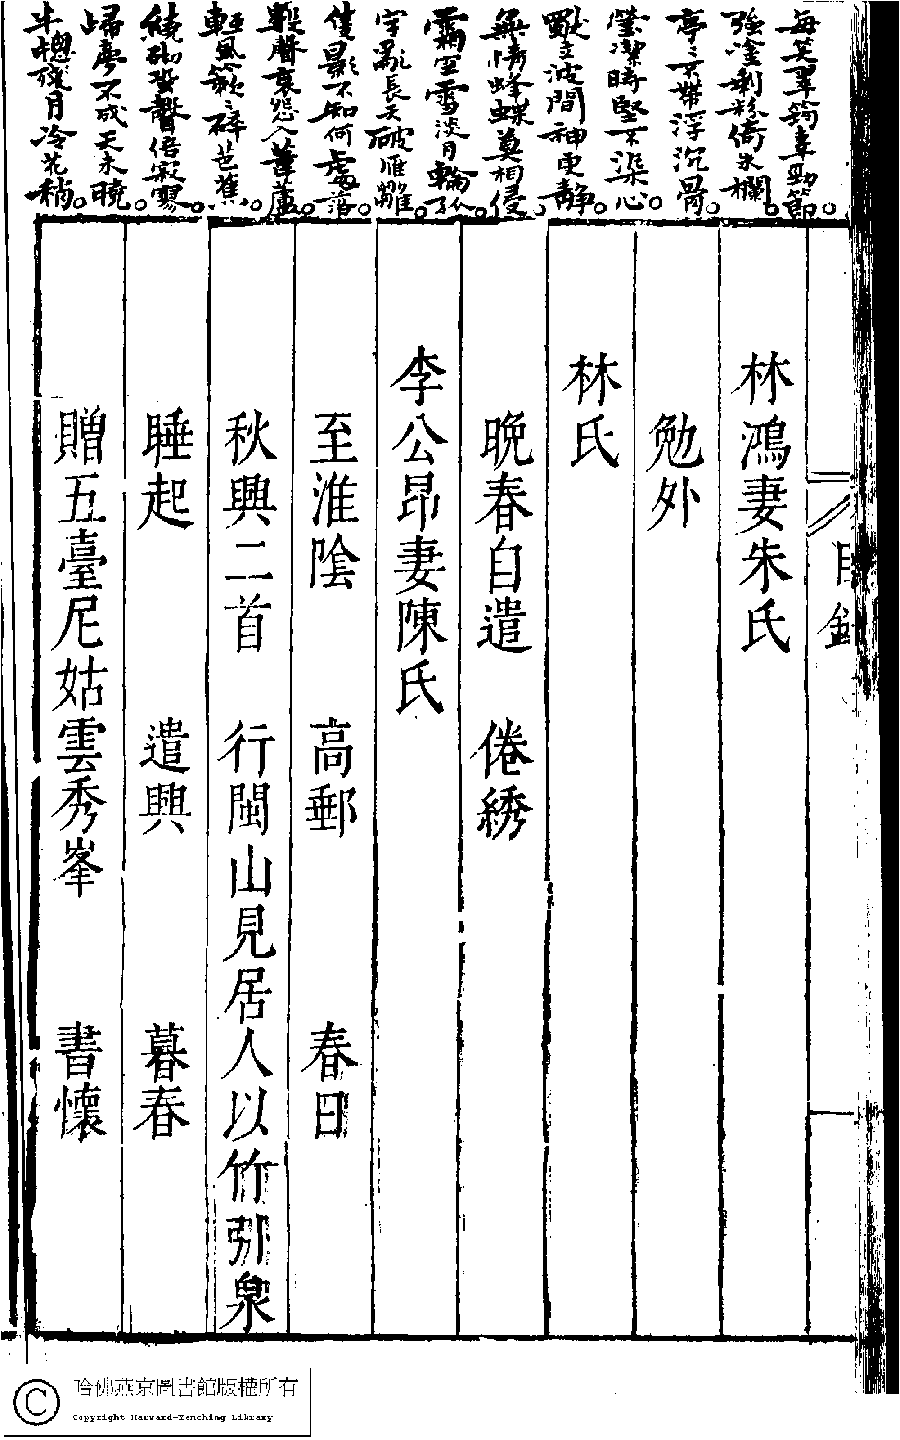 每笑翠筠辜勁節
強塗剩粉倚朱欄
亭々不帶浮沉骨
瑩潔時堅不染心
獨立波間神更靜
無情蜂蝶莫相侵
霜空雪淡月輪孤
字亂長天破雁雛
隻影不知何處落
數聲哀怨入葦蘆
輕風簌々碎芭蕉
繞砌蛩聲倍寂寥
歸夢不成天未曉
半牕殘月冷花稍
目錄
林鴻妻朱氏
勉外
林氏
晚春自遣 倦綉
李公昂妻陳氏
至淮陰 高郵 春日
秋興二首 行閩山見居人以竹引泉
睡起 遣興 暮春
贈五臺尼姑雲秀峯 書懷
哈佛燕京圖書館版權所有
Copyright Harvard-Yenching Library